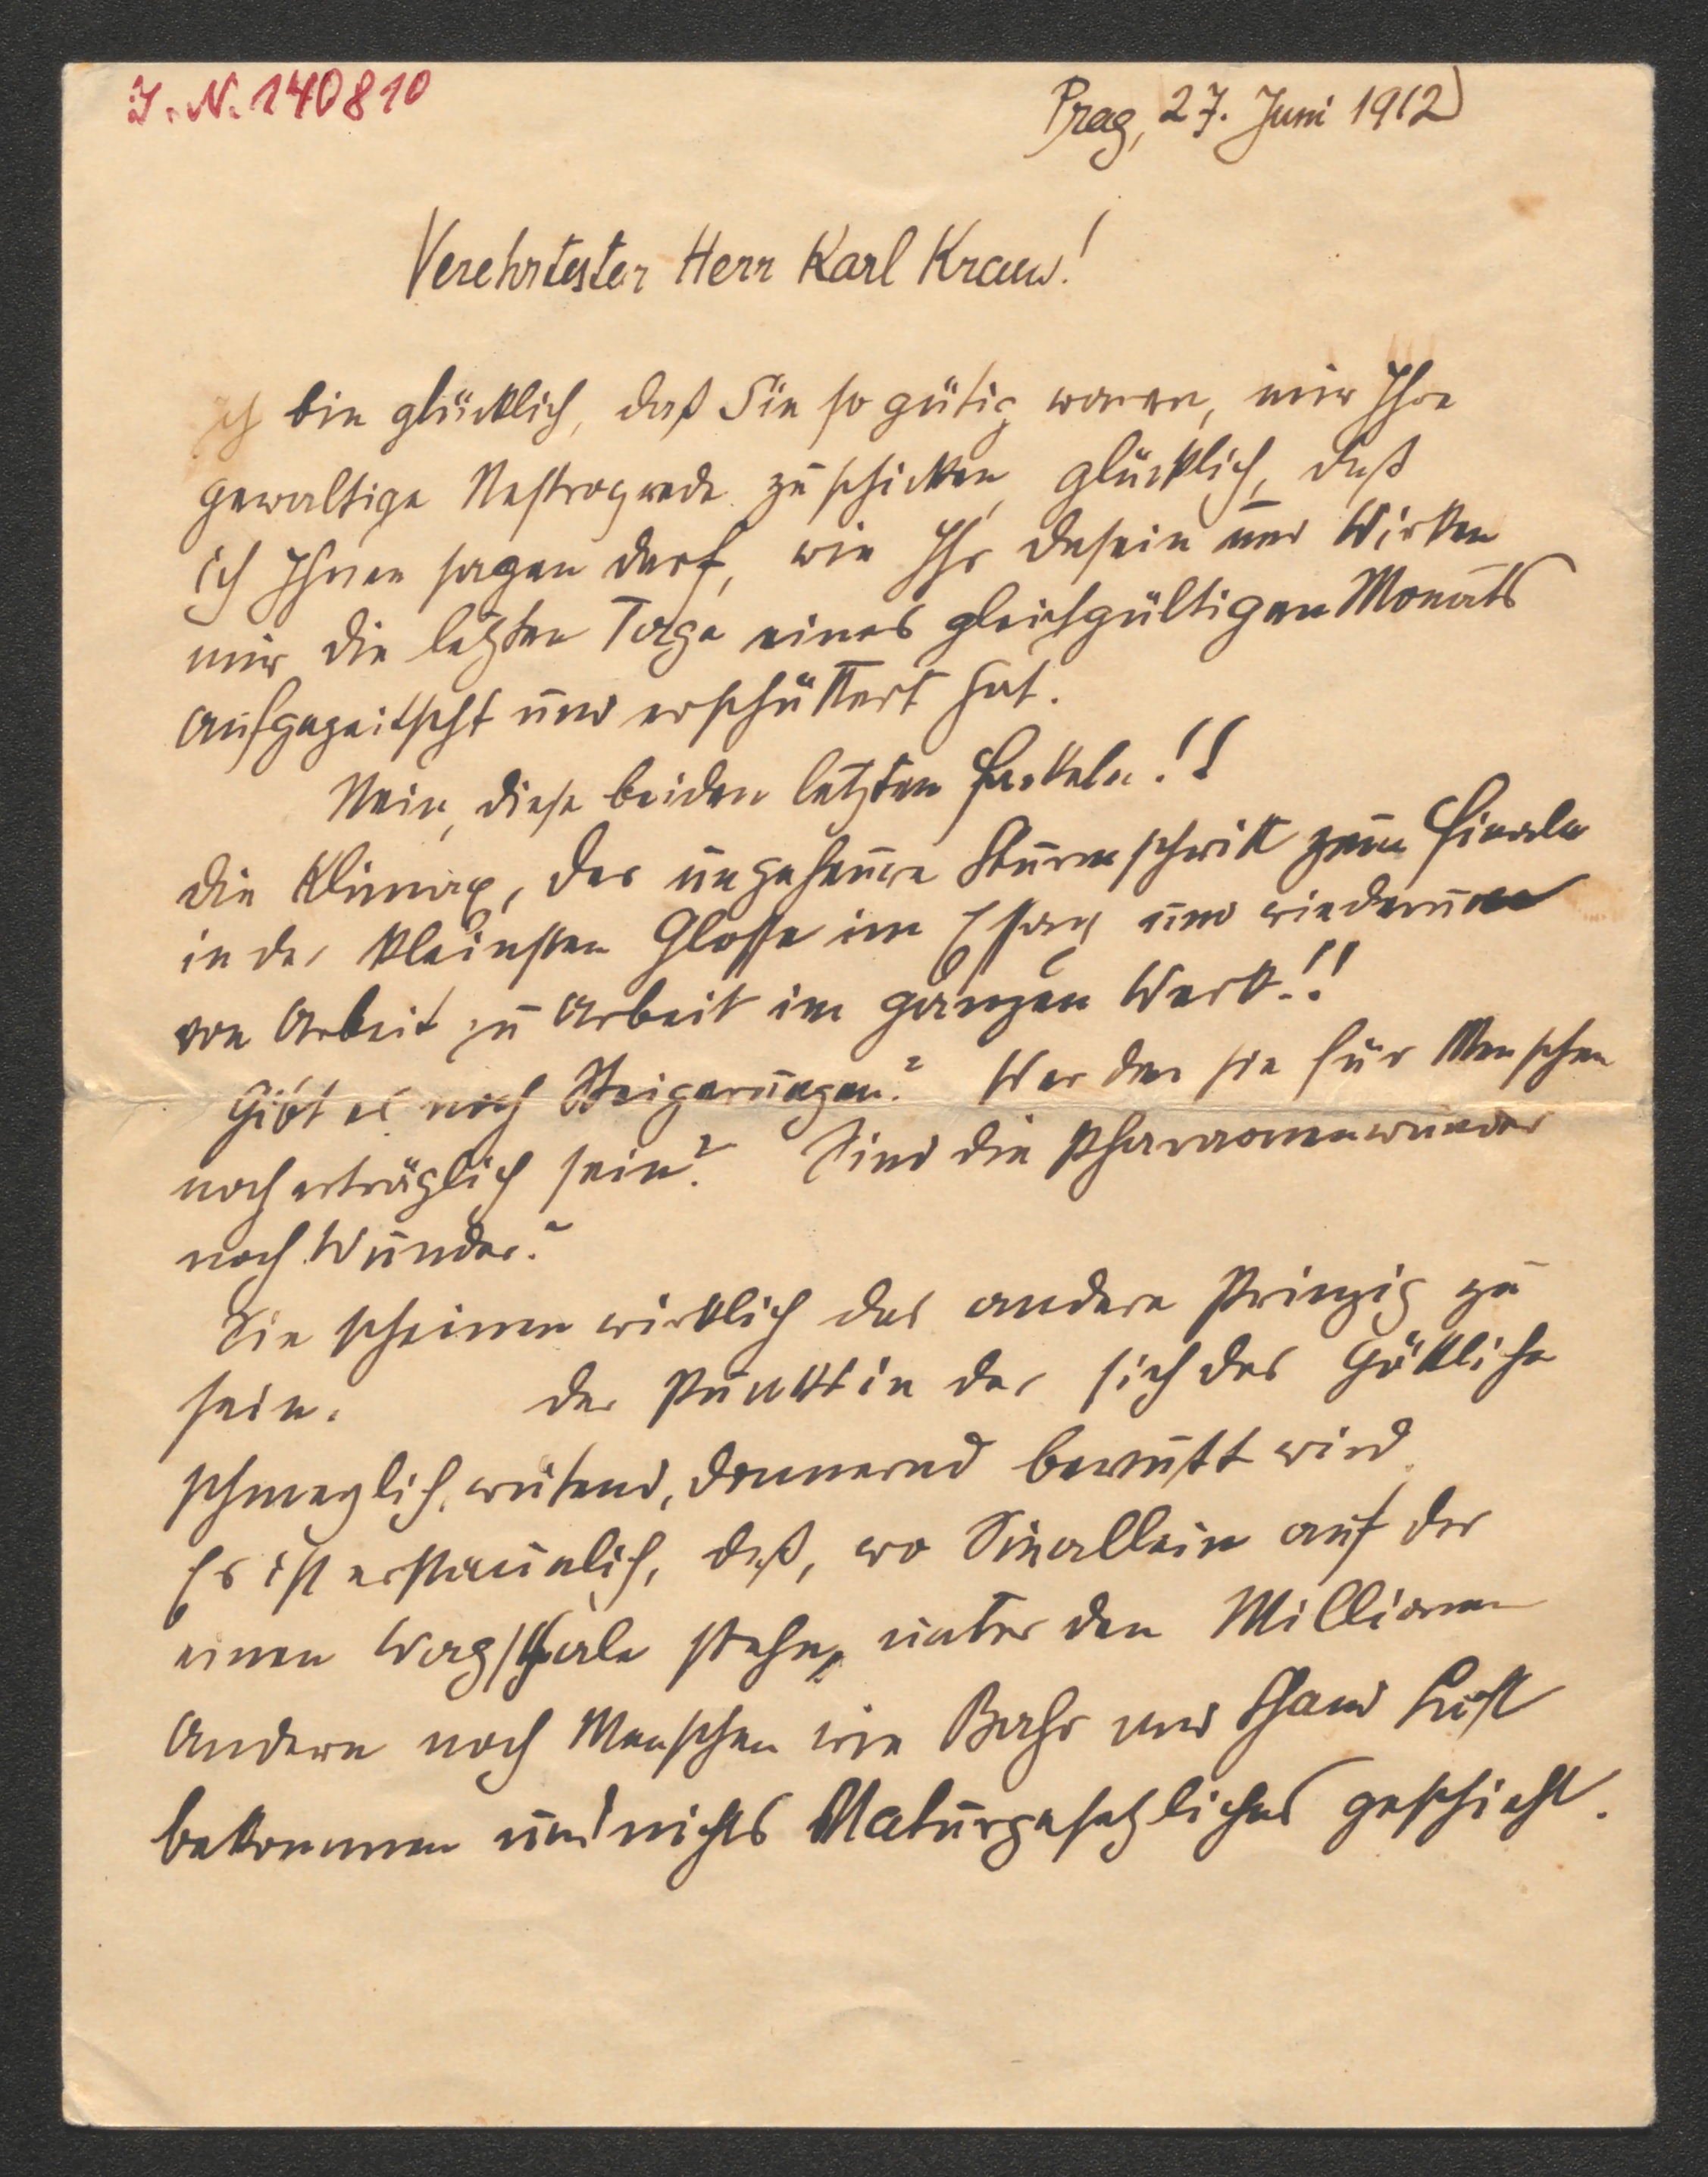 J. N. 140810
Prag, 27. Juni 1912
Verehrtester Herr Karl Kraus!
Ich bin glücklich, daß Sie so gütig waren, mir Ihre
gewaltige Nestroyrede zu schicken, glücklich, daß
ich Ihnen sagen darf, wie Ihr Dasein und Wirken
mir die letzten Tage eines gleichgültigen Monats
aufgepeitscht und erschüttert hat.
Nein, diese beiden letzten Fackeln!!
Die Klimax, der ungeheure Sturmschritt zum Finale
in der kleinsten Glosse im Essay und wiederum
von Arbeit zu Arbeit im ganzen Werk!!
Gibt es noch Steigerungen? Werden sie für Menschen
noch erträglich sein? Sind die Pharaonenwunder
noch Wunder?
Sie scheinen wirklich das andere Prinzip zu
sein. Der Punkt in der sich das Göttliche
schmerzlich, wütend, donnernd bewußt wird.
Es ist erstaunlich, daß, wo Sie allein auf der
einen Wagschale stehn, unter den Millionen
Andern noch Menschen wie Bahr und Luft
bekommen und nichts Naturgesetzliches geschieht.